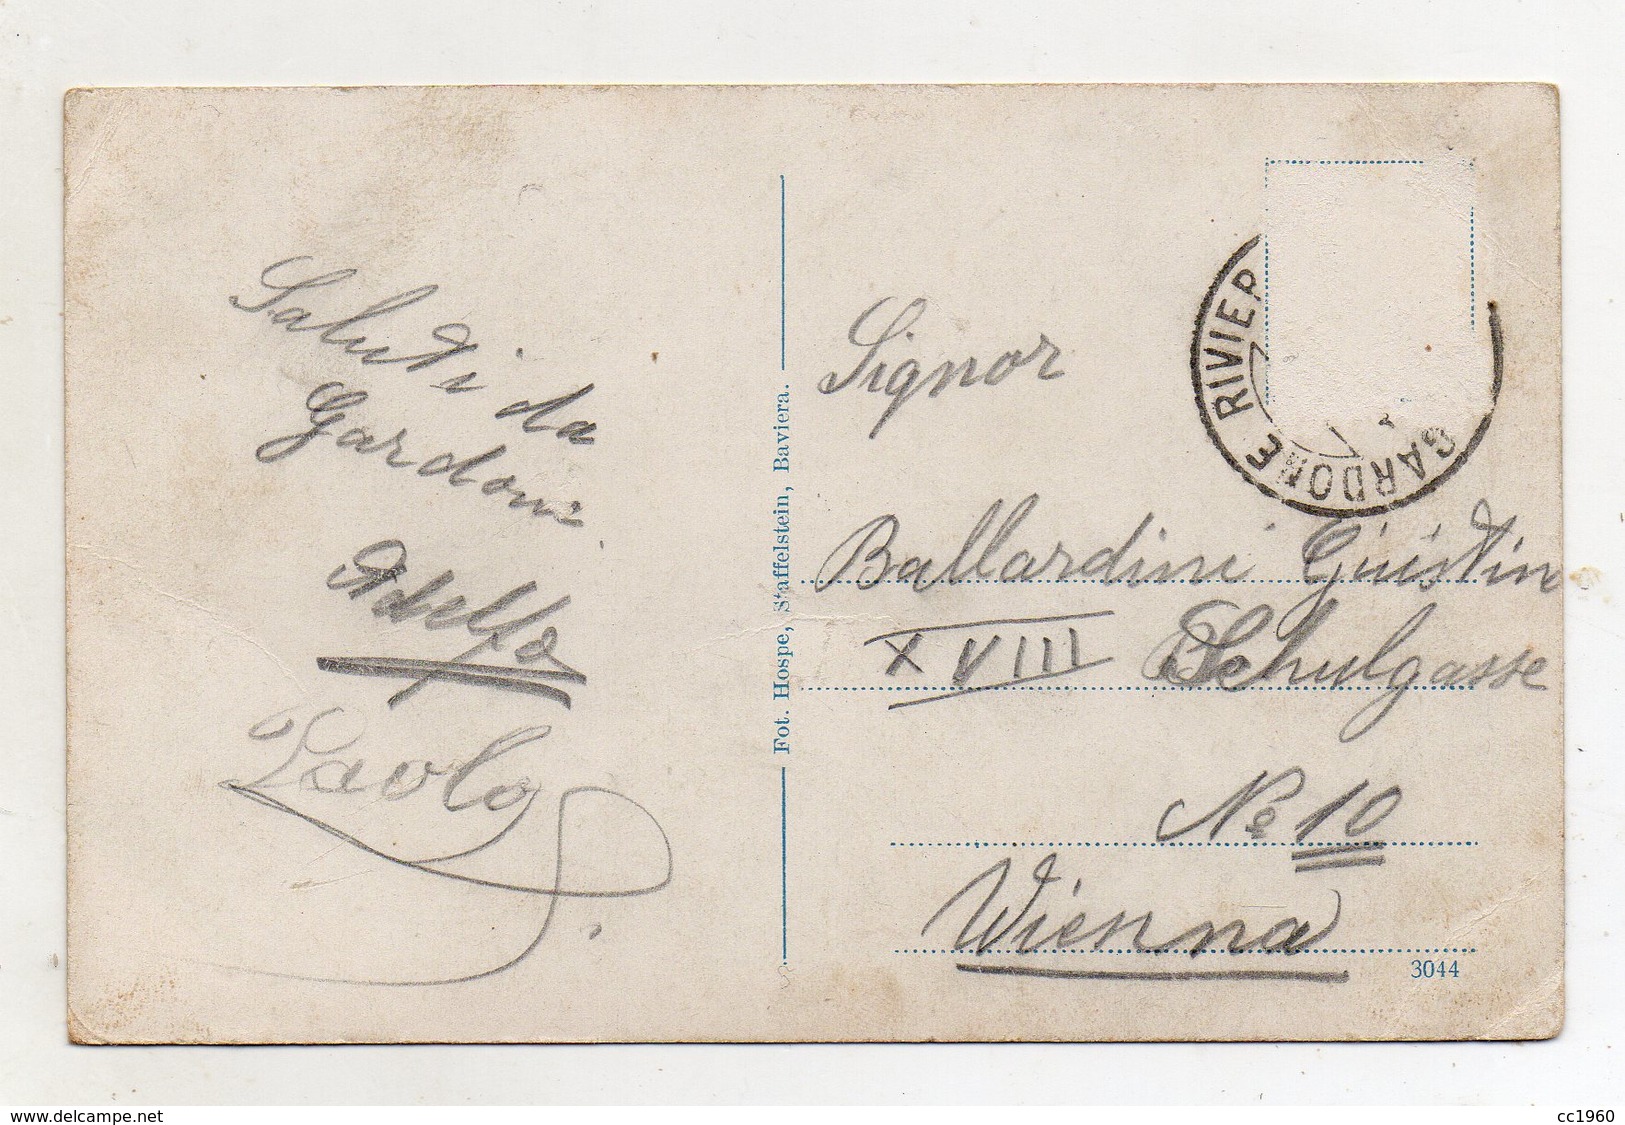 Saluti da
Gardone
Adolfo
Paolo
Fot. Hospe, Staffelstein, Baviera.
GARDONE RIVIER
Signor
Ballardini Giustin
XVIII Schulgasse
No 10
Wienna
3044
www.delcampe.net
cc1960